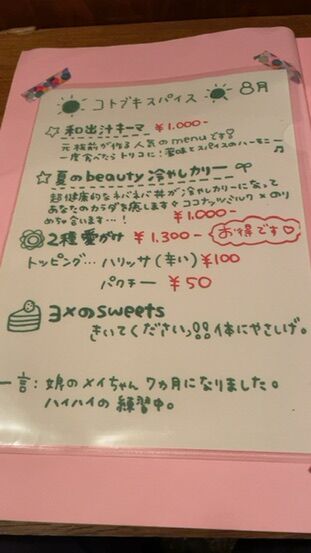 コトブキスパイス 8月
和出汁キーマ ¥1.000-
元板前が作る人気のmenuです♡
一度食べたらトリコに!薬味とスパイスのハーモニー♫
夏のbeauty 冷やしカリー
超健康的なネバネバ丼が冷やしカリーになって
あなたのカラダを癒します☆ココナッツミルク×のり
めちゃ合います…! ¥1.000-
2種愛がけ ¥1.300- お得です♡
トッピング… ハリッサ(辛い) ¥100
パクチー ¥50
ヨメのsweets
きいてくださいっ!! 体にやさしげ。
一言:娘のメイちゃん 7ヵ月になりました。
ハイハイの練習中。